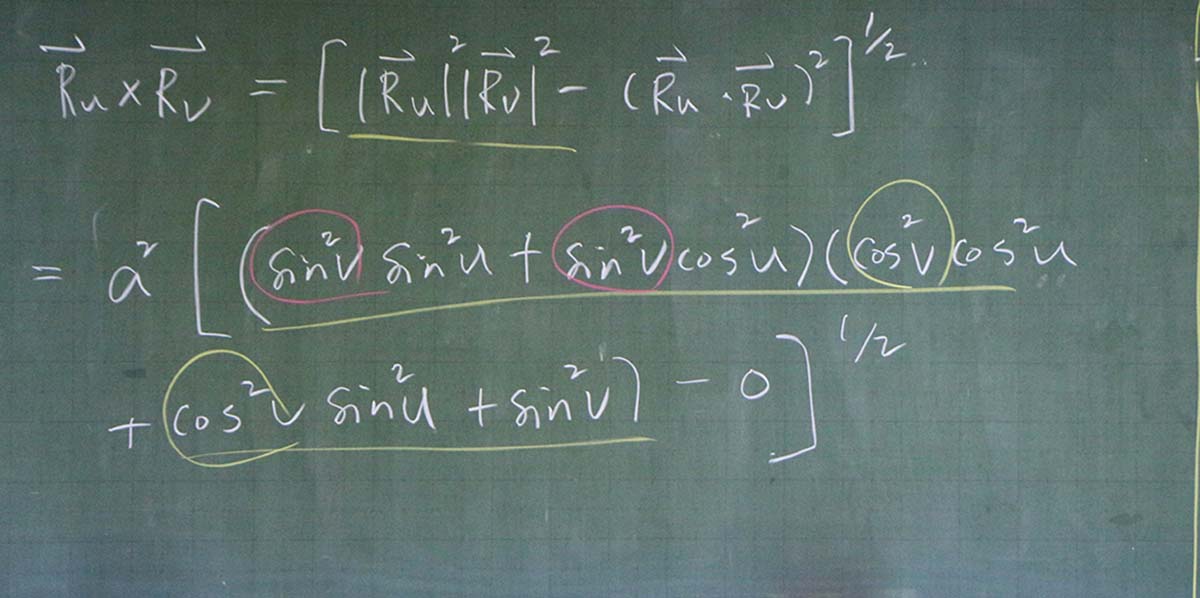 R⃗u × R⃗v = [|R⃗u|²|R⃗v|² - (R⃗u · R⃗v)²]^1/2
= a² [(sin²v sin²u + sin²v cos²u)(cos²v cos²u
+ cos²v sin²u + sin²v) - 0]^1/2